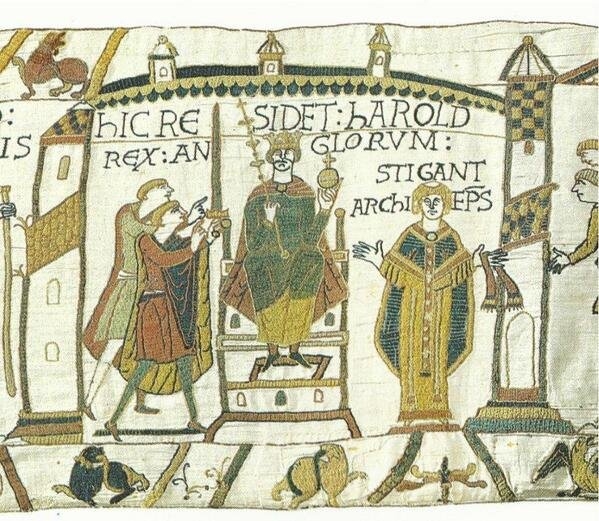 : HIC RE SIDET : hAROLD
IS REX : AN GLORVM :
STIGANT
ARChI EP̅S